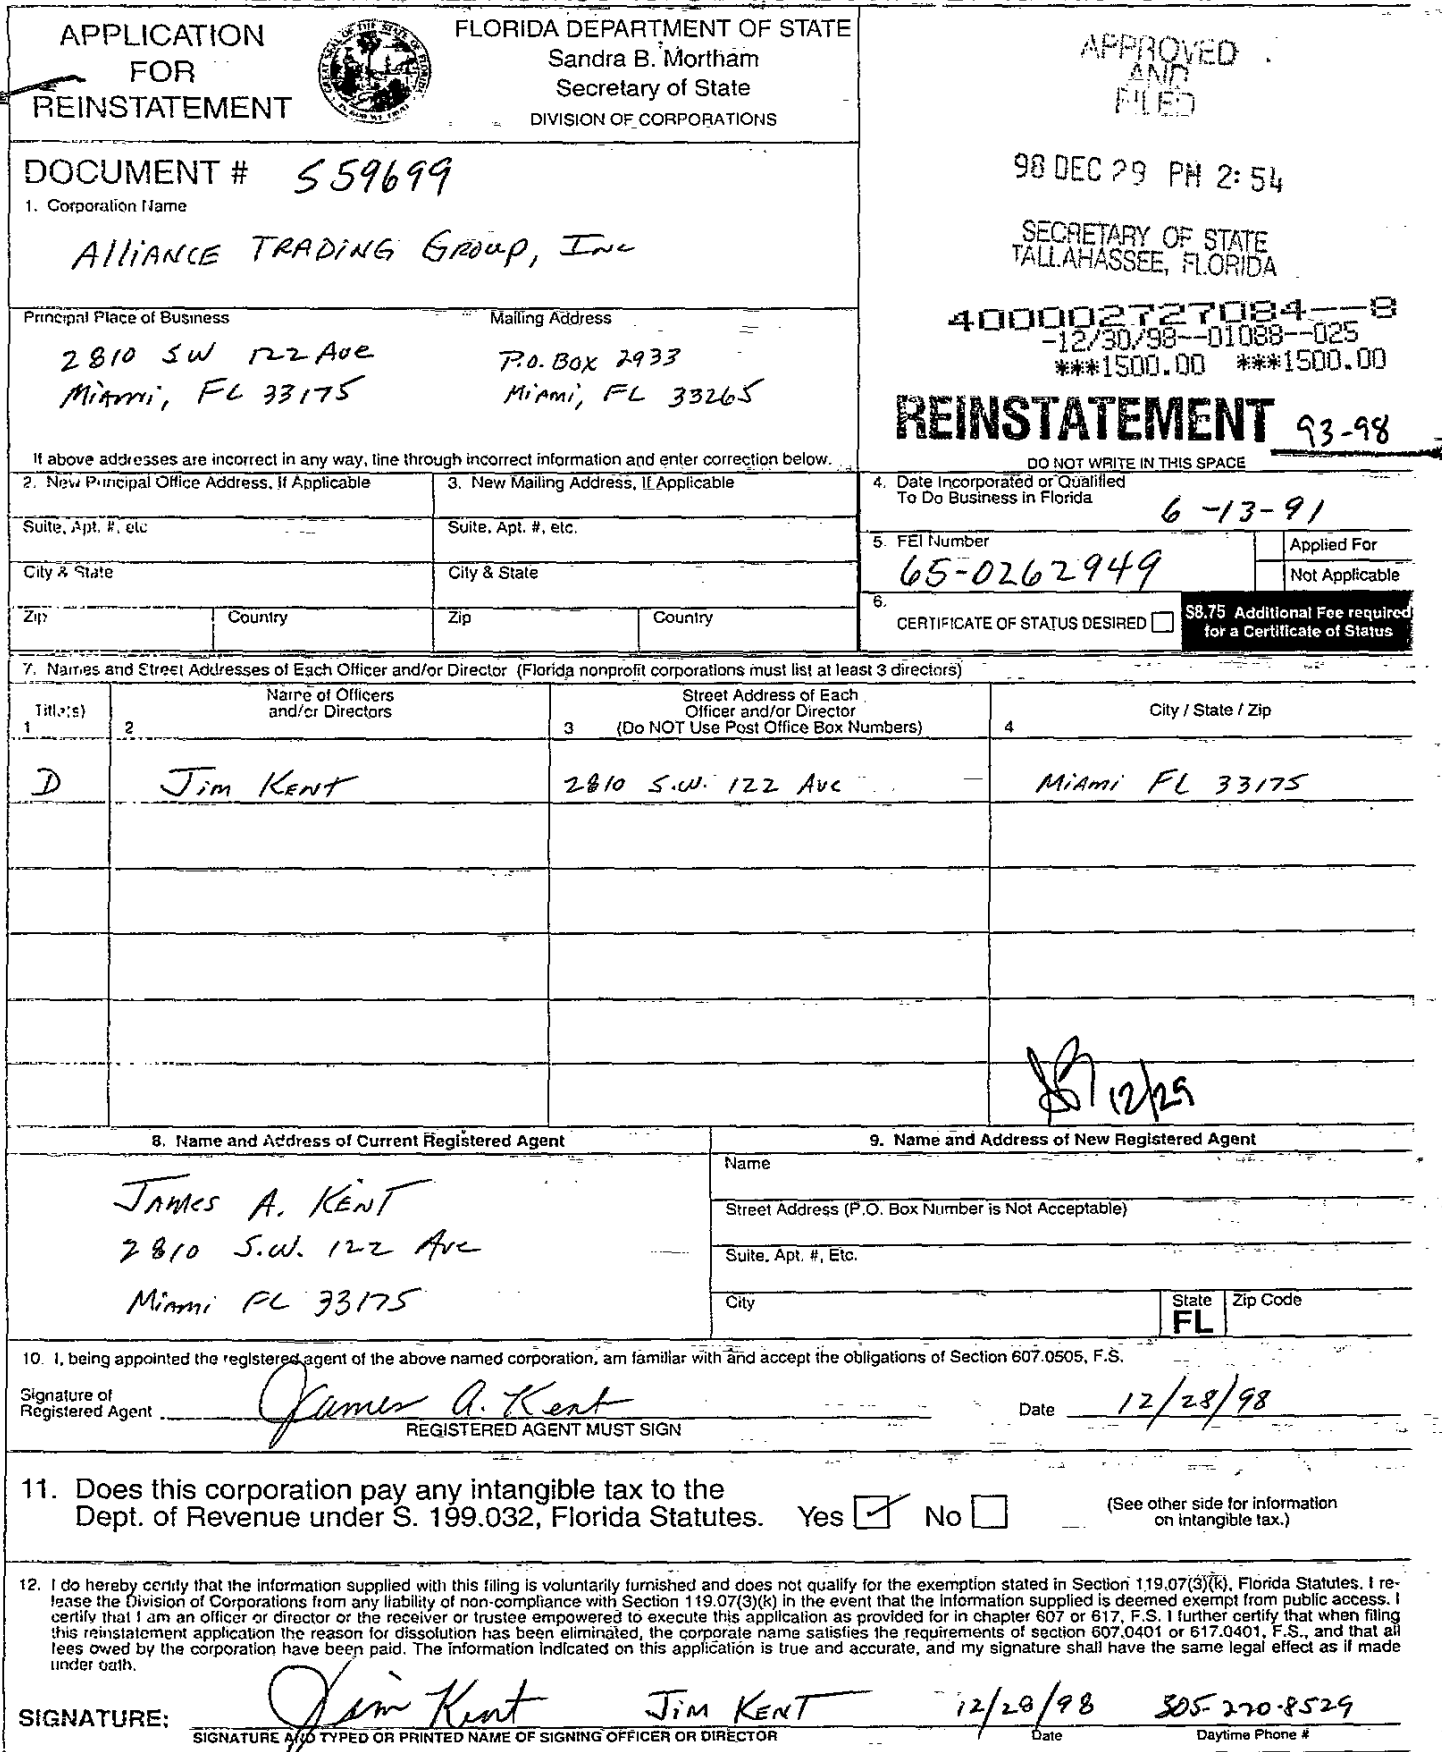 APPLICATION
FOR
REINSTATEMENT
FLORIDA DEPARTMENT OF STATE
Sandra B. Mortham
Secretary of State
DIVISION OF CORPORATIONS
APPROVED
AND
FILED
98 DEC 29 PM 2:54
SECRETARY OF STATE
TALLAHASSEE, FLORIDA
DOCUMENT # S59699
1. Corporation Name
Alliance Trading Group, Inc
400002727084--8
-12/30/98--01088--025
***1500.00 ***1500.00
Principal Place of Business
Mailing Address
2810 SW 122 Ave
Miami, FL 33175
P.O. Box 2933
Miami, FL 33265
REINSTATEMENT 93-98
If above addresses are incorrect in any way, line through incorrect information and enter correction below.
DO NOT WRITE IN THIS SPACE
2. New Principal Office Address, If Applicable
3. New Mailing Address, If Applicable
4. Date Incorporated or Qualified
To Do Business in Florida
6-13-91
Suite, Apt. #, etc
Suite, Apt. #, etc.
5. FEI Number
65-0262949
Applied For
Not Applicable
City & State
City & State
Zip
Country
Zip
Country
6.
CERTIFICATE OF STATUS DESIRED
$8.75 Additional Fee required
for a Certificate of Status
7. Names and Street Addresses of Each Officer and/or Director (Florida nonprofit corporations must list at least 3 directors)
Title(s)
1
Name of Officers
and/or Directors
2
Street Address of Each
Officer and/or Director
3 (Do NOT Use Post Office Box Numbers)
City / State / Zip
4
D Jim Kent 2810 S.W. 122 Ave Miami FL 33175
12/29
8. Name and Address of Current Registered Agent
James A. Kent
2810 S.W. 122 Ave
Miami FL 33175
9. Name and Address of New Registered Agent
Name
Street Address (P.O. Box Number is Not Acceptable)
Suite, Apt. #, Etc.
City
State
FL
Zip Code
10. I, being appointed the registered agent of the above named corporation, am familiar with and accept the obligations of Section 607.0505, F.S.
Signature of
Registered Agent James A. Kent
Date 12/28/98
REGISTERED AGENT MUST SIGN
11. Does this corporation pay any intangible tax to the
Dept. of Revenue under S. 199.032, Florida Statutes. Yes No
(See other side for information
on intangible tax.)
12. I do hereby certify that the information supplied with this filing is voluntarily furnished and does not qualify for the exemption stated in Section 119.07(3)(k), Florida Statutes. I re-
lease the Division of Corporations from any liability of non-compliance with Section 119.07(3)(k) in the event that the information supplied is deemed exempt from public access. I
certify that I am an officer or director or the receiver or trustee empowered to execute this application as provided for in chapter 607 or 617, F.S. I further certify that when filing
this reinstatement application the reason for dissolution has been eliminated, the corporate name satisfies the requirements of section 607.0401 or 617.0401, F.S., and that all
fees owed by the corporation have been paid. The information indicated on this application is true and accurate, and my signature shall have the same legal effect as if made
under oath.
SIGNATURE: Jim Kent Jim Kent 12/28/98 305-220-8529
SIGNATURE AND TYPED OR PRINTED NAME OF SIGNING OFFICER OR DIRECTOR
Date
Daytime Phone #